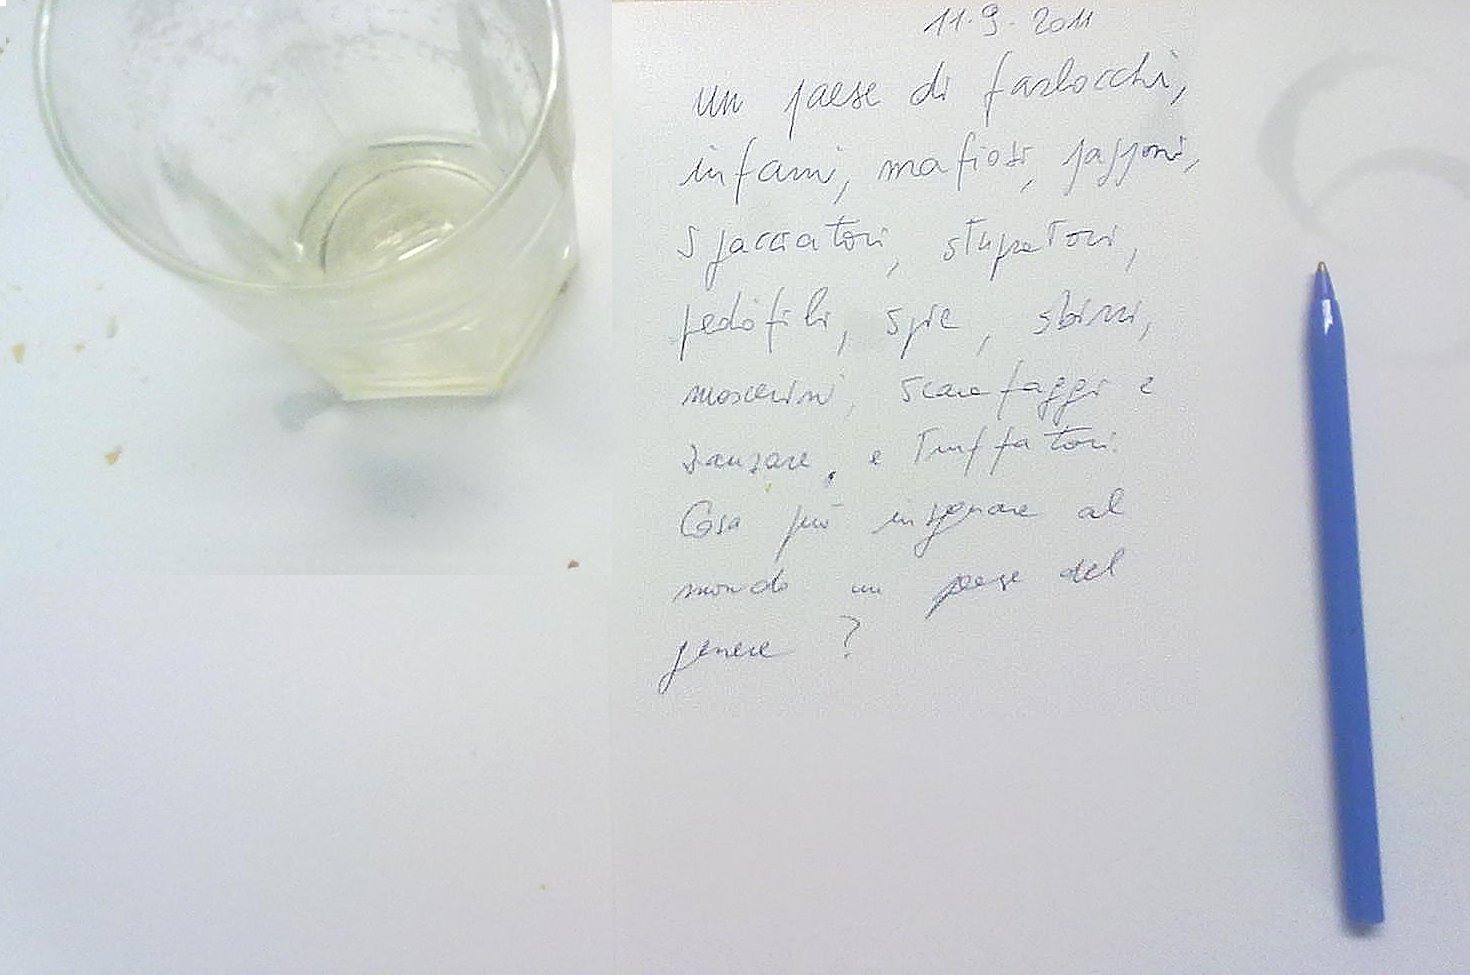 11.9.2011
un paese di farlocchi,
infami, mafiosi, papponi,
spacciatori, stupratori,
pedofili, spie, sbirri,
moscerini, scarafaggi e
zanzare, e truffatori.
Cosa può insegnare al
mondo un paese del
genere ?